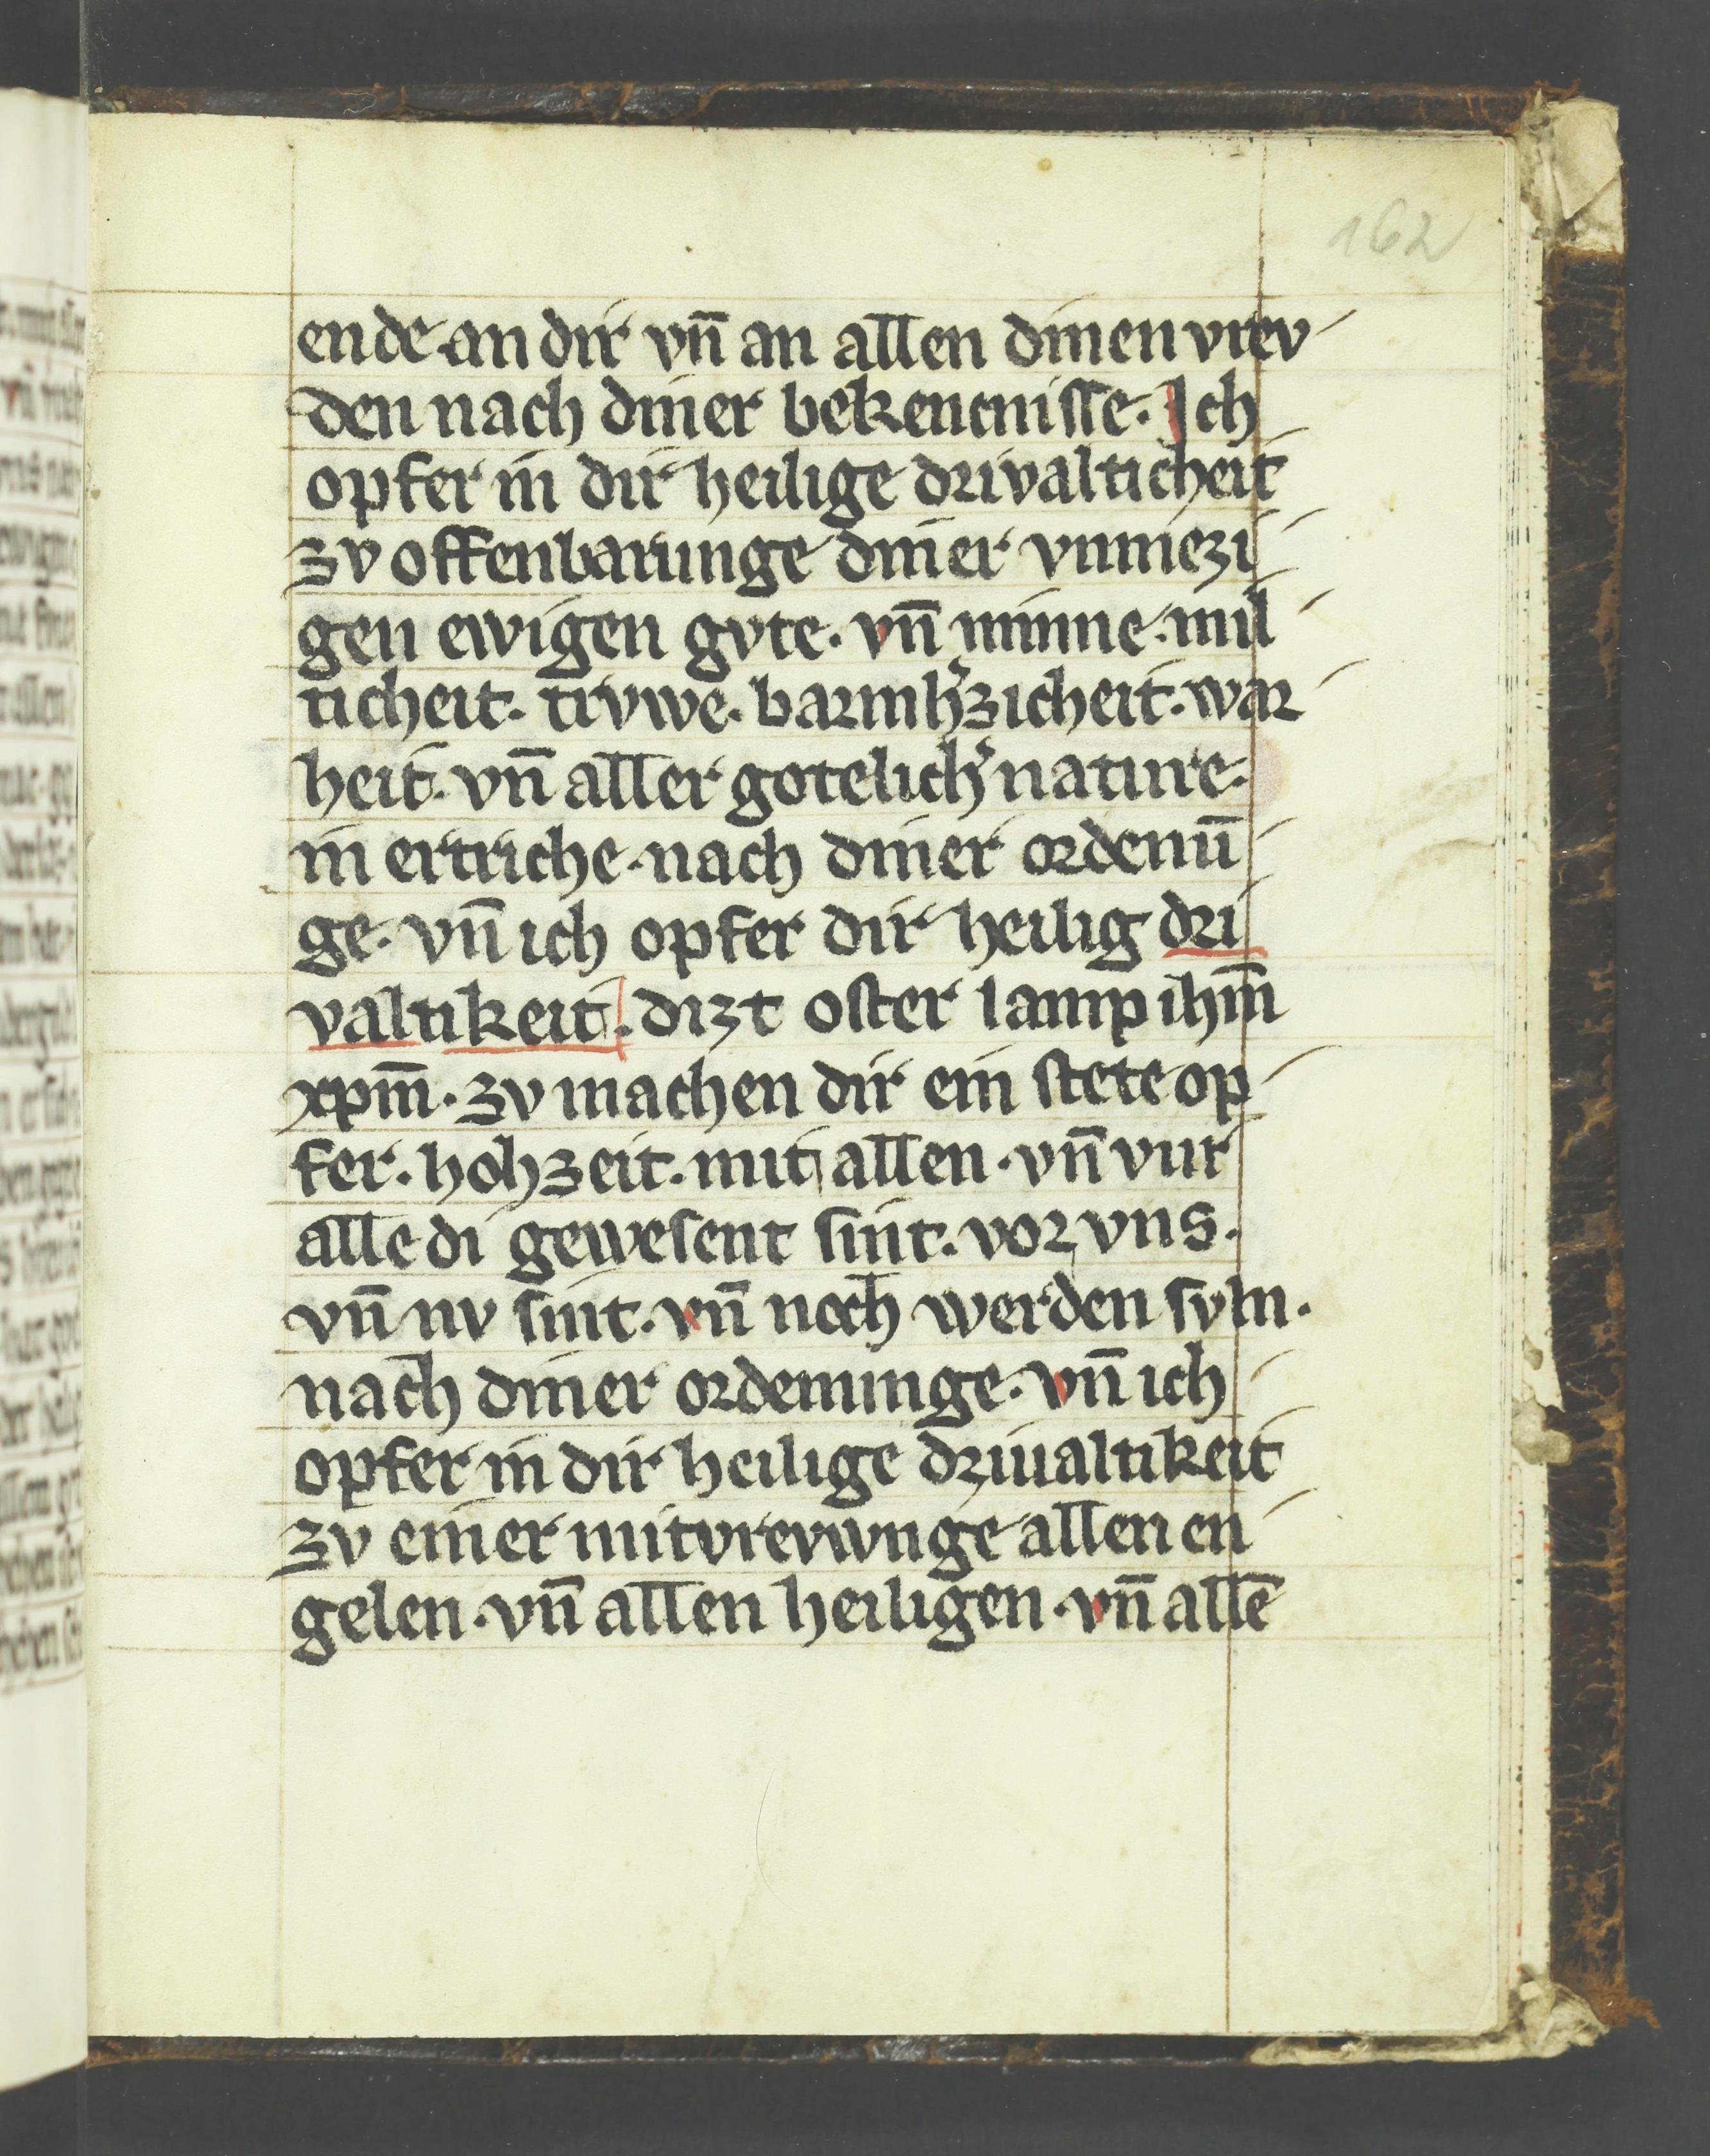 162
ende. an dir vn̄ an allen dinen vrev-
den nach diner bekencnisse. Ich
opfer in dir heilige drivalticheit
zv offenbarunge diner vnmezi-
gen ewigen gvte. vn̄ minne. mil-
ticheit. trvwe. barmh̓zicheit. war-
heit. vn̄ aller gotelich̓ nature.
in ertriche. nach diner ordenū-
ge. vn̄ ich opfer dir heilig dri-
valtikeit. dizt oster lamp ihm̄
xpm̄. zv machen dir ein stete op-
fer. hohzeit. mit allen. vn̄ vur
alle di gewesent sint. vor vns.
vn̄ nv sint. vn̄ noch werden svln.
nach diner ordenunge. vn̄ ich
opfer in dir heilige driualtikeit
zv einer mitvrevwnge allen en-
gelen. vn̄ allen heiligen. vn̄ allē